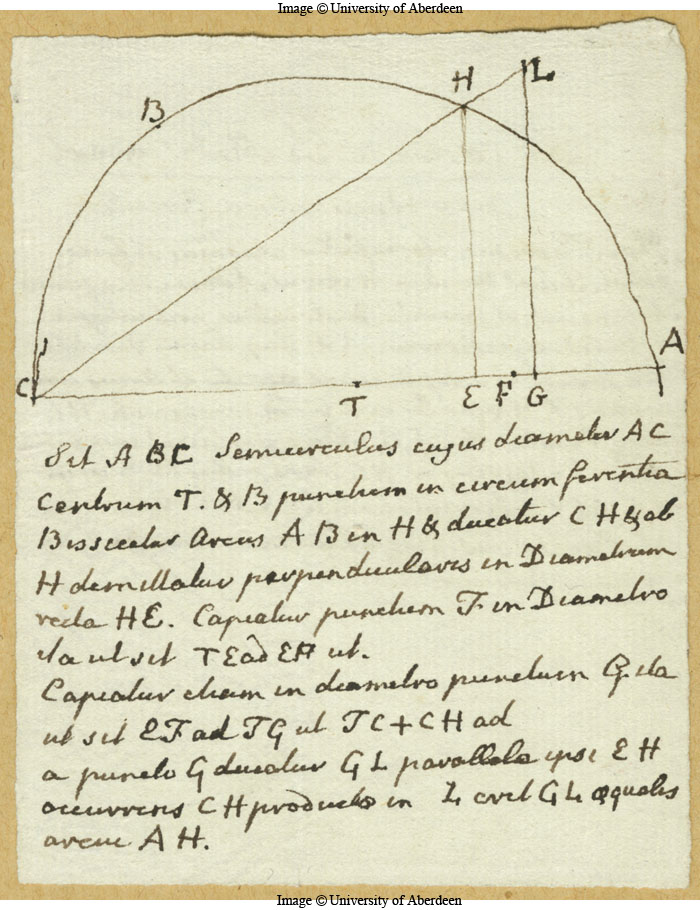 Image © University of Aberdeen
B
H
L
A
C
T
E
F
G
Sit A B C Semicirculus cujus diameter A C
Centrum T. & B punctum in circumferentia
Bissecetur Arcus A B in H & ducatur C H & ab
H demittatur perpendicularis in Diametrum
recta H E. Capiatur punctum F in Diametro
ita ut sit T E ad E F ut.
Capiatur etiam in diametro punctum G ita
ut sit E F ad F G ut T C + C H ad
a puncto G ducatur G L parallela ipsi E H
occurrens C H producto in L erit G L æqualis
arcui A H.
Image © University of Aberdeen